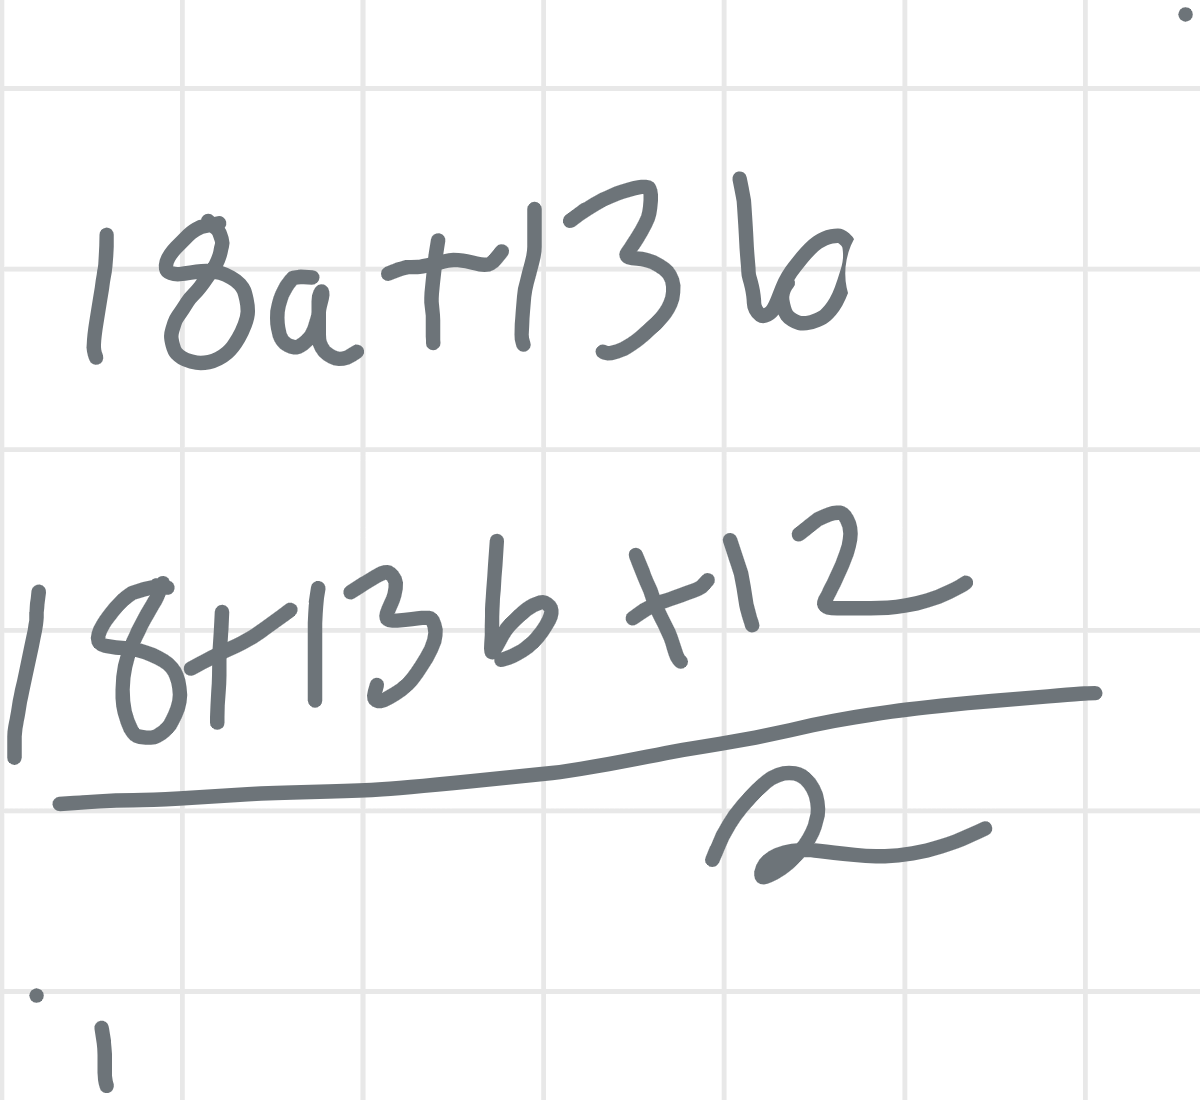 18a+13b
18+13b+12
2
1